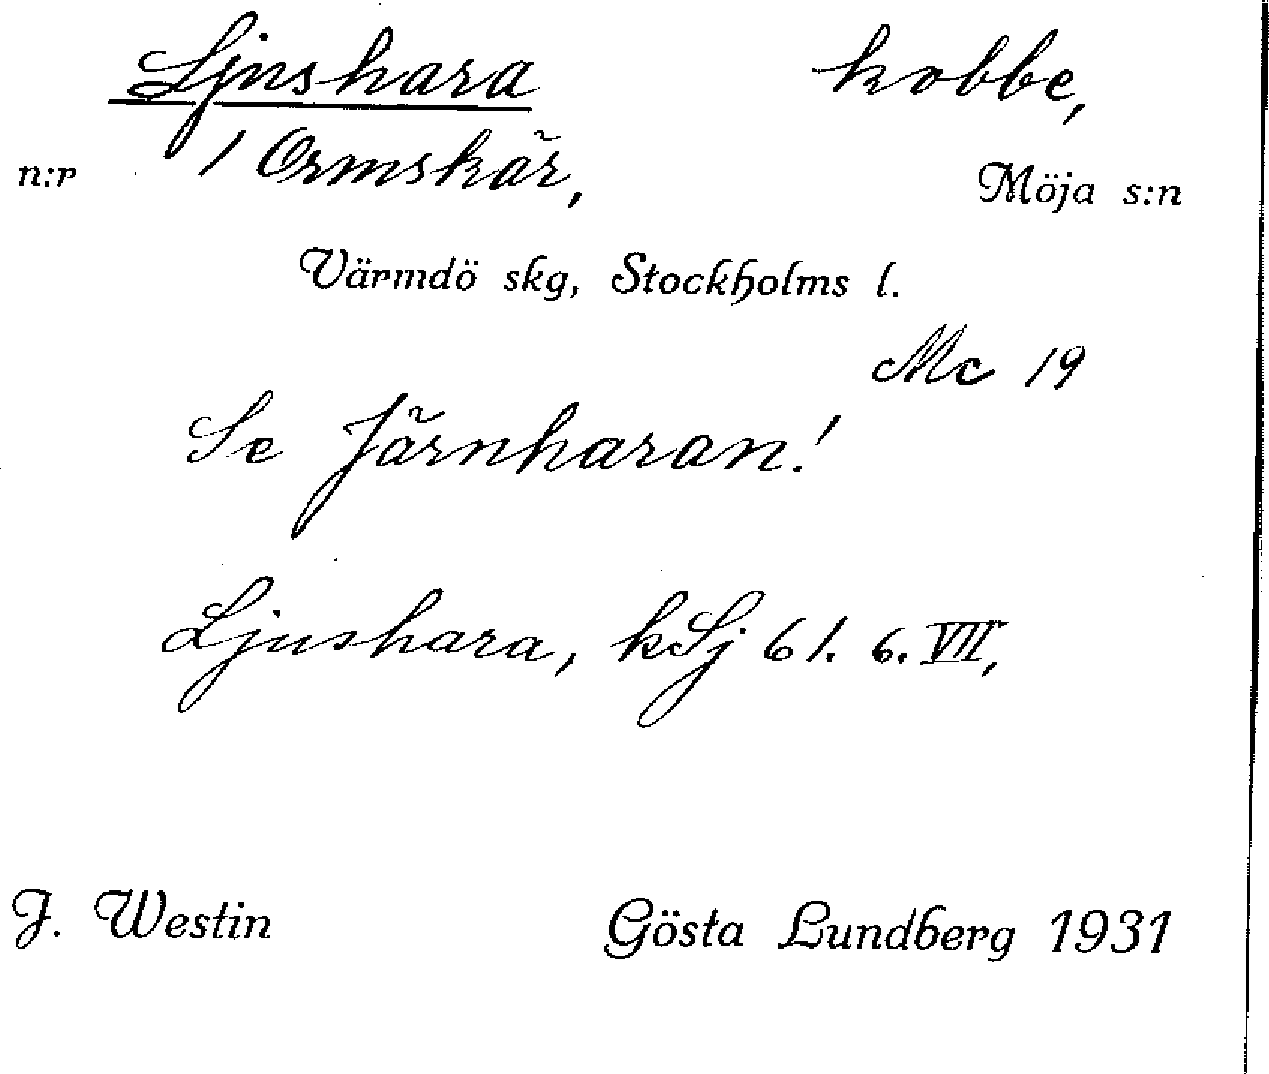 Ljushara kobbe,
n:r 1 Ormskär, Möja s:n
Värmdö skg, Stockholms l.
Mc 19
Se Järnharan!
Ljushara, kSj 61. 6. VII,
J. Westin Gösta Lundberg 1931